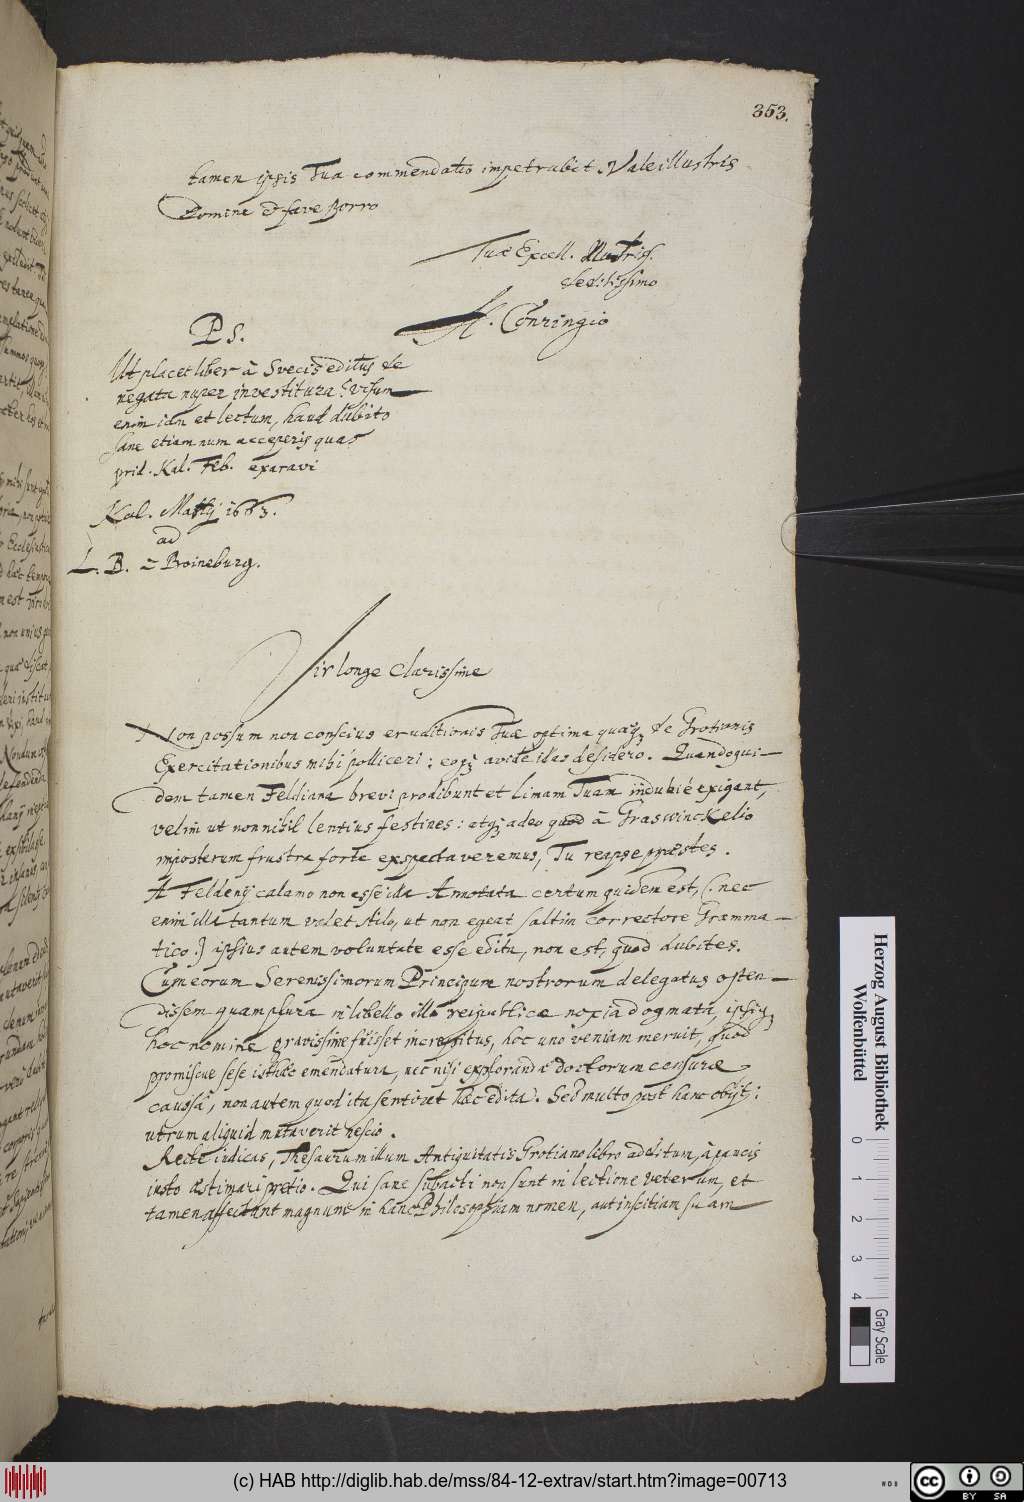 353.
tamen ipsis Tua commendatio impetrabit Vale illustris
Domine et fave porro
Tuæ Excell. Illustriss.
deditissimo
H. Conringio
P.S.
Ut placet liber à Svecis editus de
negata nuper investitura? visum
enim iam et lectum, haud dubito
sane etiamnum acceperis quas
prid. Kal. Feb. exaravi
Kal. Martij 1663.
ad
L. B. à Boineburg.
Vir longe Clarissime
Non possum non conscius eruditionis Tuæ optima quæq; de Grotianis
Exercitationibus mihi polliceri: eoq; avide illas desidero. Quandoqui-
dem tamen Feldiana brevi prodibunt et limam Tuam indubié exigant,
velim ut nonnihil lentius festines: atq; adeo quod à Graswinckelio
imposterum frustra forte exspectaveremus, Tu reapse præstes.
A Feldenij calamo non esse illa Annotata certum quidem est, (: nec
enim illa tantum valet stilo, ut non egeat saltim correctore Gramma-
tico:) ipsius autem voluntate esse edita, non est, quod dubites.
Cum eorum Serenissimorum Principum nostrorum delegatus osten-
dissem quamplura in libello illo reipublicæ noxia dogmata, ipsiq;
hoc nomine gravissime fuisset increpitus, hoc uno veniam meruit, quod
promiscue sese isthæc emendatura, nec nisi explorandæ doctorum censuræ
caussâ, non autem quod ita sentiret hæc edita. Sed multo post hanc obijt:
utrum aliquid mutaverit nescio.
Recte iudicas, Thesaurum illum Antiquitatis Grotiano libro additum, à paucis
iusto æstimari pretio. Qui sane subacti non sunt in lectione veterum, et
tamen affectant magnum in hanc Philosophiam nomen, aut inscitiam suam
Herzog August Bibliothek
Wolfenbüttel
0 1 2 3 4
Gray Scale
(c) HAB http://diglib.hab.de/mss/84-12-extrav/start.htm?image=00713
cc BY SA